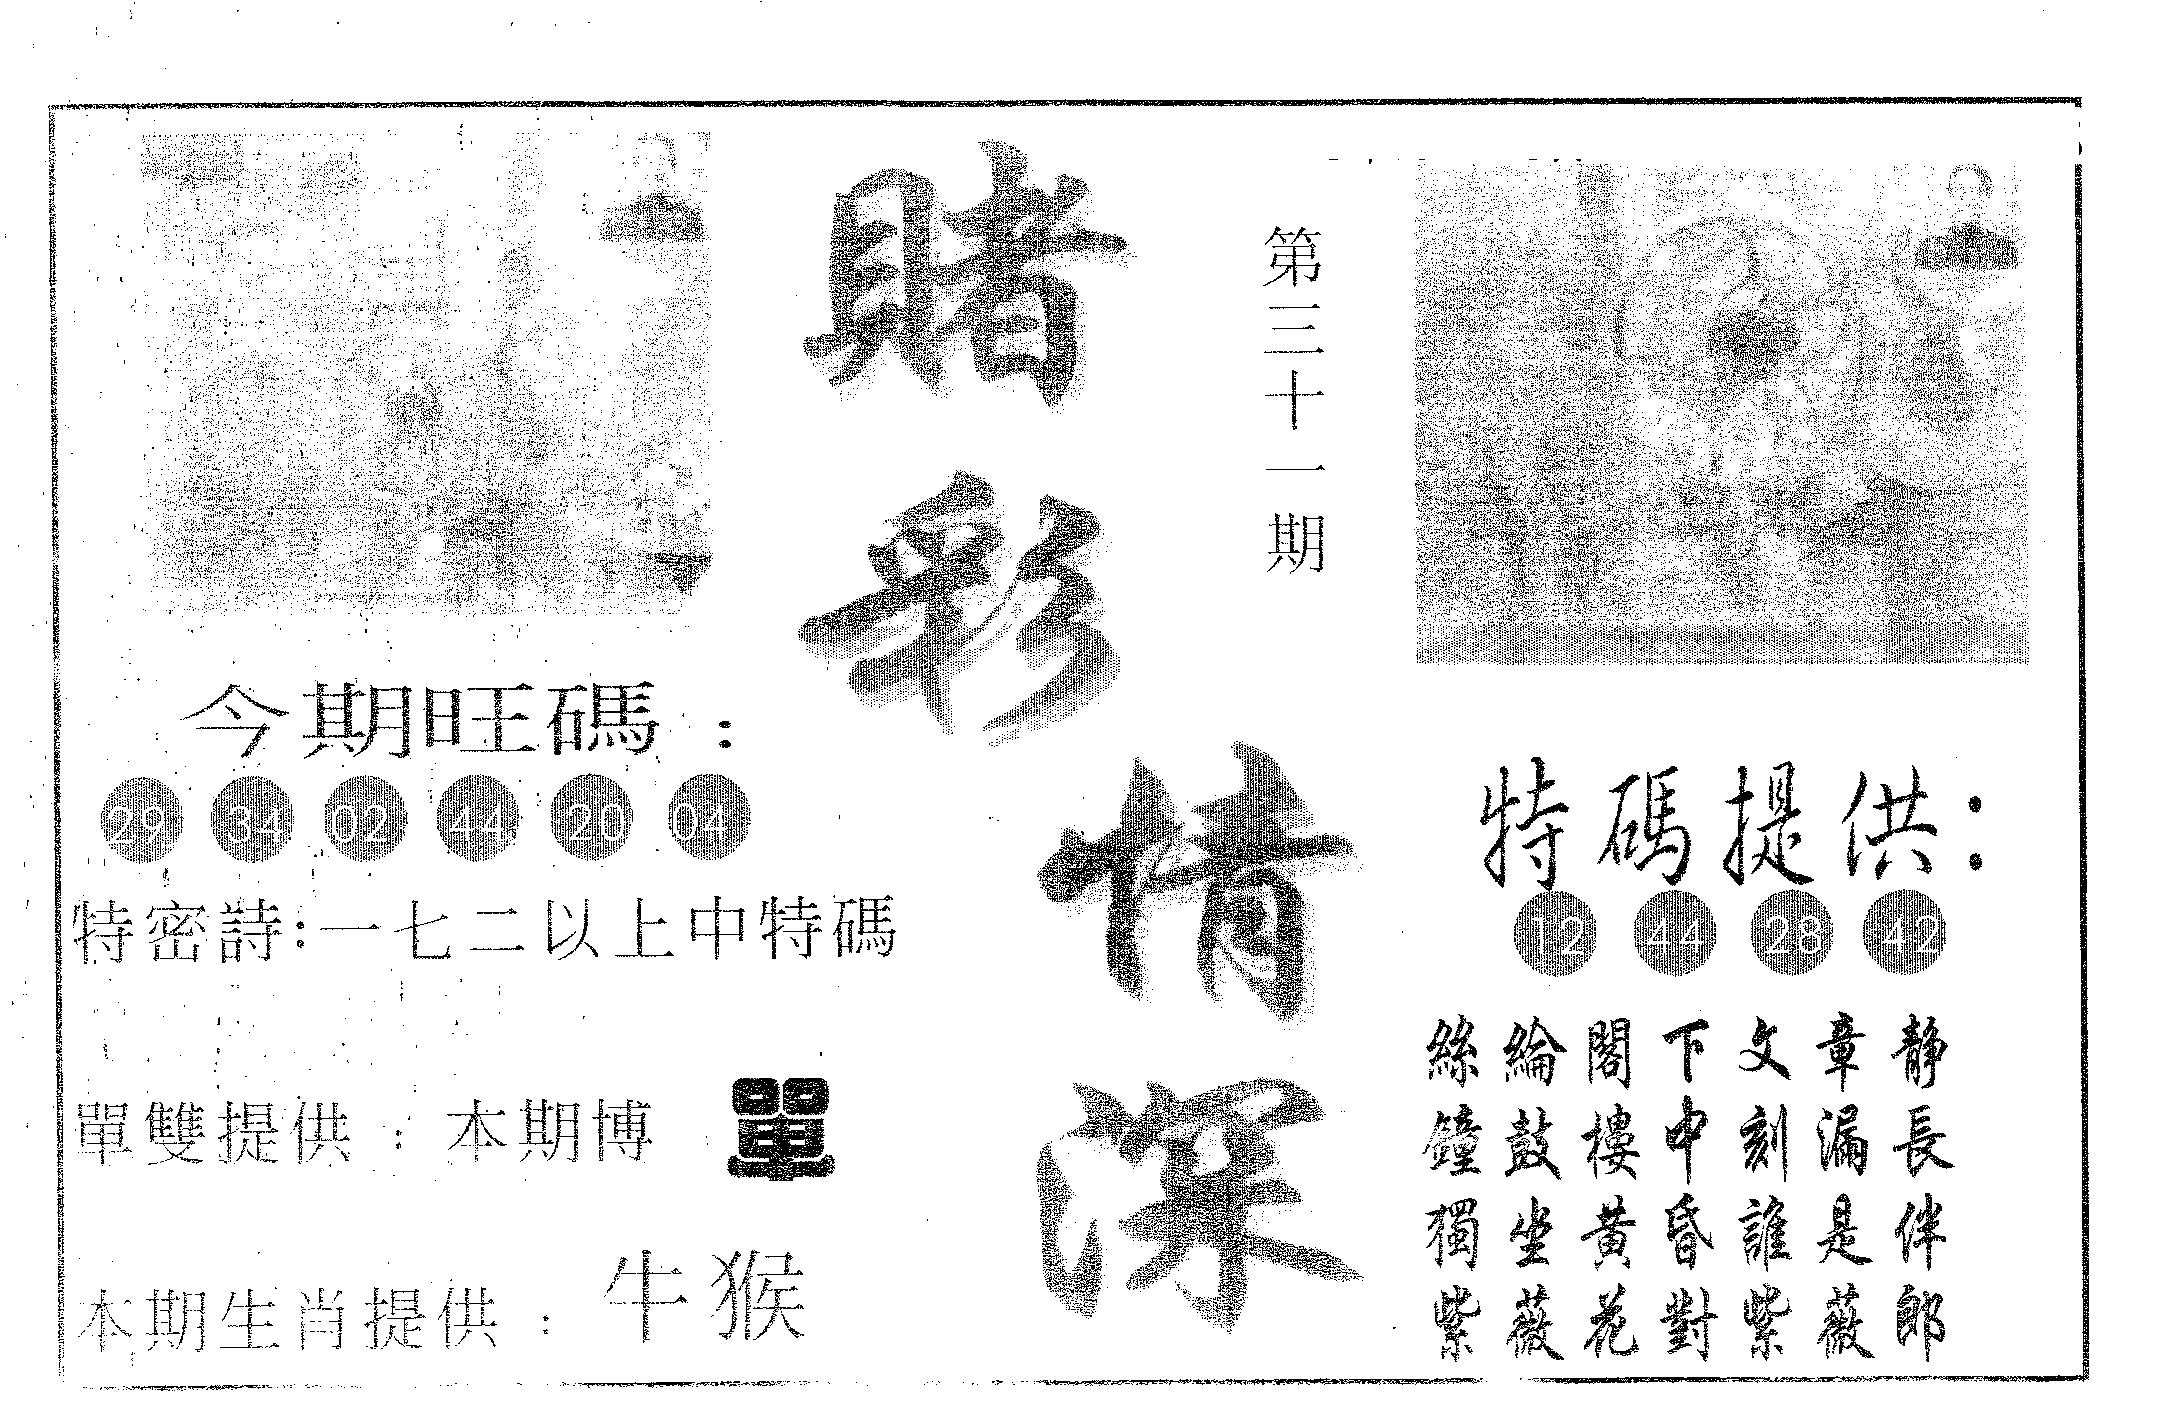 賭彩情深
第三十一期
今期旺碼：
29 34 02 44 20 04
特密詩：一七二以上中特碼
單雙提供：本期博 單
本期生肖提供：牛猴
特碼提供：
12 44 28 42
絲綸閣下文章静
鐘鼓樓中刻漏長
獨坐黃昏誰是伴
紫薇花對紫薇郎